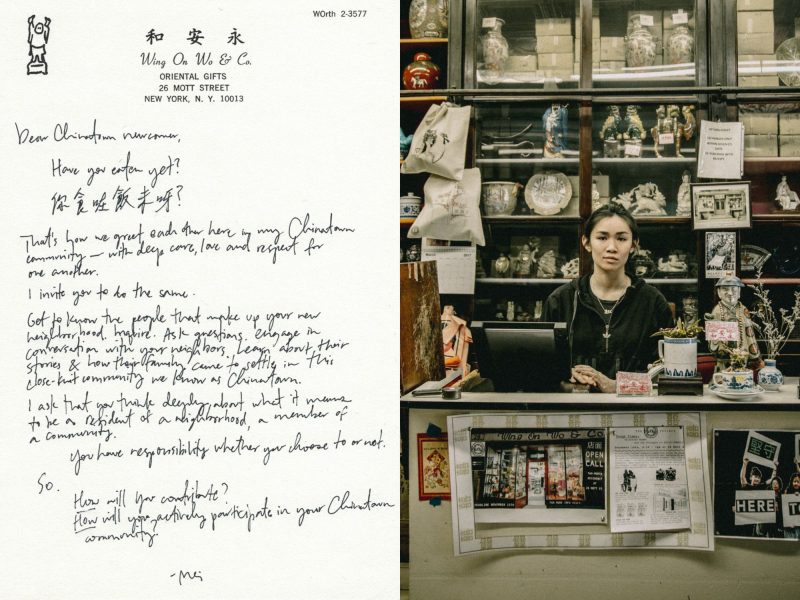 WOrth 2-3577
和 安 永
Wing On Wo & Co.
ORIENTAL GIFTS
26 MOTT STREET
NEW YORK, N. Y. 10013
Dear Chinatown newcomer,
Have you eaten yet?
你食咗飯未呀?
That's how we greet each other here in my Chinatown
community — with deep care, love and respect for
one another.
I invite you to do the same.
Get to know the people that make up your new
neighborhood. Inquire. Ask questions. Engage in
conversation with your neighbors. Learn about their
stories & how their family came to settle in this
close-knit community we know as Chinatown.
I ask that you think deeply about what it means
to be a resident of a neighborhood, a member of
a community.
You have responsibility whether you choose to or not.
So.
How will you contribute?
How will you actively participate in your Chinatown
community.
-Mei
WING ON WO & CO.
店面
OPEN
CALL
HERE
TO